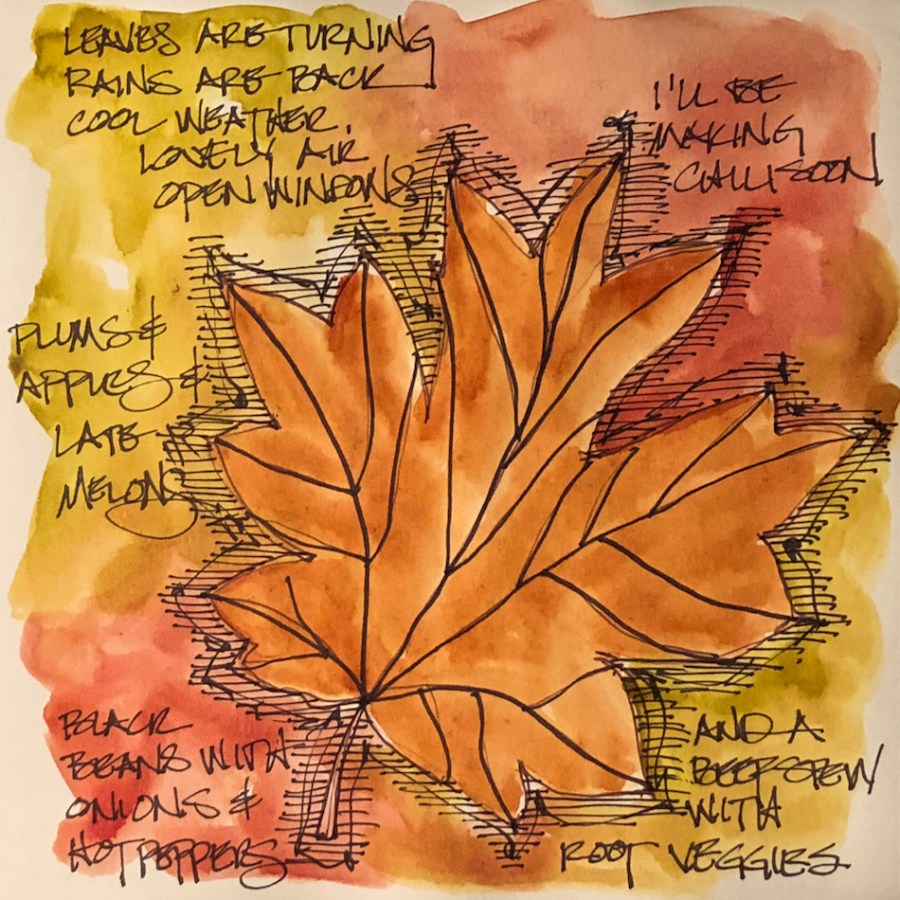 LEAVES ARE TURNING
RAINS ARE BACK
COOL WEATHER,
LOVELY AIR
OPEN WINDOWS
I'LL BE
MAKING
CALLISOON
PLUMS &
APPLES &
LATE
MELONS
BLACK
BEANS WITH
ONIONS &
HOT PEPPERS
AND A
BEEF STEW
WITH
ROOT VEGGIES